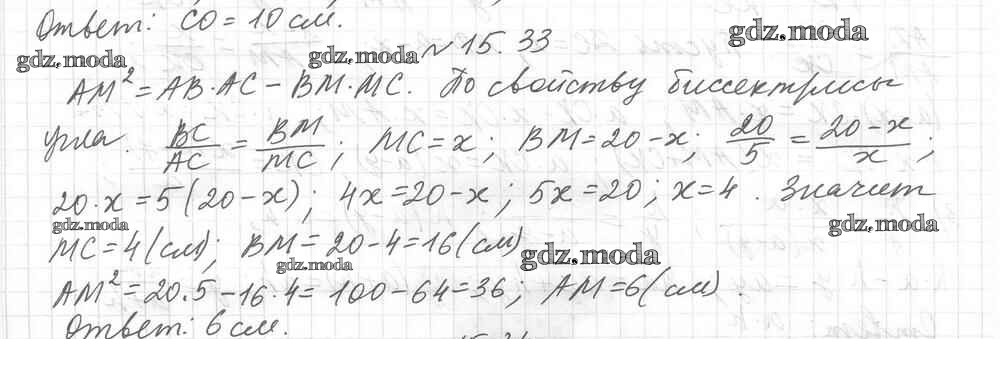 Ответ: CO = 10 см.
gdz.moda
gdz.moda gdz.moda № 15.33
AM² = AB·AC − BM·MC. По свойству биссектрисы
угла. BC/AC = BM/MC; MC = x; BM = 20 − x; 20/5 = (20 − x)/x;
20·x = 5(20 − x); 4x = 20 − x; 5x = 20; x = 4. Значит
gdz.moda gdz.moda
MC = 4 (см); BM = 20 − 4 = 16 (см) gdz.moda
gdz.moda
AM² = 20·5 − 16·4 = 100 − 64 = 36; AM = 6 (см).
Ответ: 6 см.